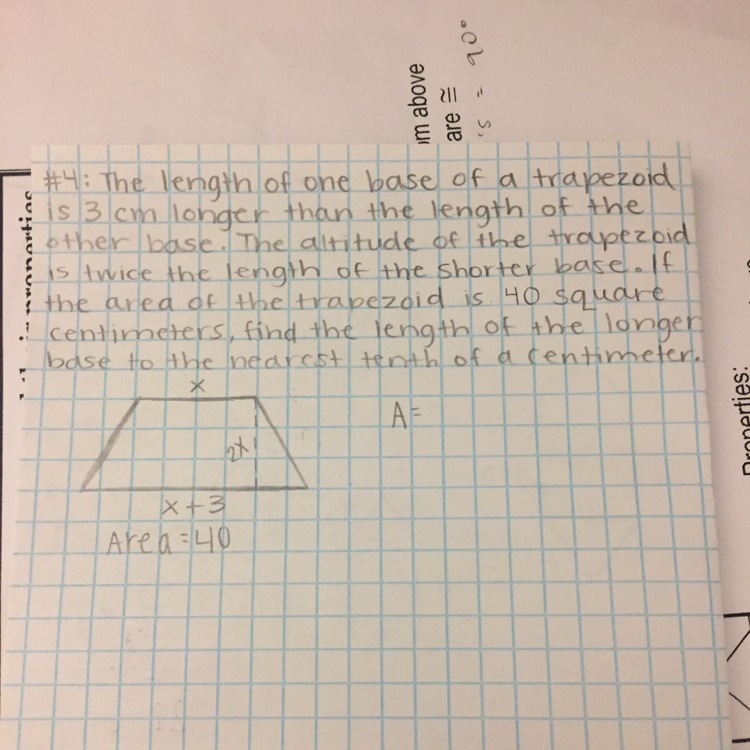 om above
are ≅
's = 90°
#4: The length of one base of a trapezoid
is 3 cm longer than the length of the
other base. The altitude of the trapezoid
is twice the length of the shorter base. If
the area of the trapezoid is 40 square
centimeters, find the length of the longer
base to the nearest tenth of a centimeter.
x
A=
2x
x+3
Area=40
Properties: